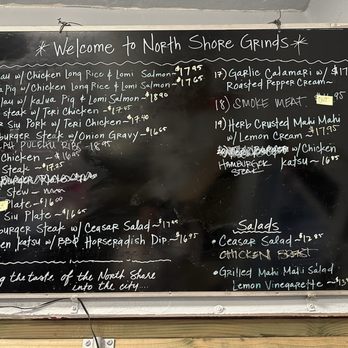 * Welcome to North Shore Grinds *
au w/ Chicken Long Rice & Lomi Salmon ~ $17.95
a Pig w/ Chicken Long Rice & Lomi Salmon ~ $17.65
lau w/ Kalua Pig & Lomi Salmon ~ $18.90
steak w/ Teri Chicken ~ $17.95
Siu Pork w/ Teri Chicken ~ $17.40
urger Steak w/ Onion Gravy ~ $16.65
Pulehu Ribs - 18.95
Chicken ~ $16.95
Steak ~ $17.55
Stew
Plate ~ $16.00
Siu Plate ~ $16.65
urger Steak w/ Ceasar Salad ~
en Katsu w/ BBQ Horseradish Dip ~ $16.95
ng the taste of the North Shore
into the city....
17) Garlic Calamari w/
Roasted Pepper Cream ~
18) Smoke Meat.
19) Herb Crusted Mahi Mahi
w/ Lemon Cream ~ $17.95
w/ Chicken
Hamburger Katsu ~ 16.95
Steak
Salads
• Ceasar Salad ~ $12.85
Chicken Breast
• Grilled Mahi Mahi Salad
Lemon Vinegarette ~